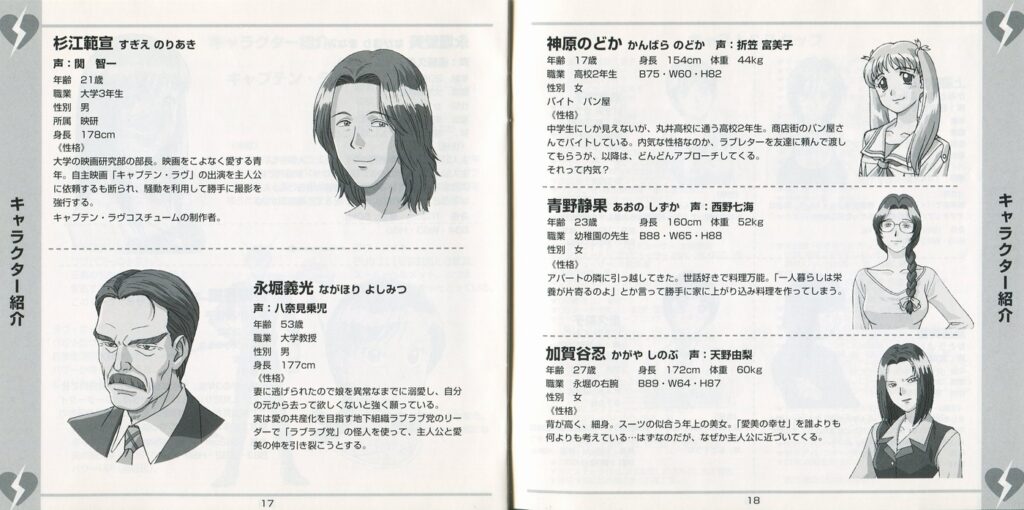 キャラクター紹介
杉江範宣 すぎえ のりあき
声：関 智一
年齢 21歳
職業 大学3年生
性別 男
所属 映研
身長 178cm
《性格》
大学の映画研究部の部長。映画をこよなく愛する青
年。自主映画「キャプテン・ラヴ」の出演を主人公
に依頼するも断られ、騒動を利用して勝手に撮影を
強行する。
キャプテン・ラヴコスチュームの制作者。
永堀義光 ながほり よしみつ
声：八奈見乗児
年齢 53歳
職業 大学教授
性別 男
身長 177cm
《性格》
妻に逃げられたので娘を異常なまでに溺愛し、自分
の元から去って欲しくないと強く願っている。
実は愛の共産化を目指す地下組織ラブラブ党のリー
ダーで「ラブラブ党」の怪人を使って、主人公と愛
美の仲を引き裂こうとする。
17
神原のどか かんばら のどか 声：折笠 富美子
年齢 17歳 身長 154cm 体重 44kg
職業 高校2年生 B75・W60・H82
性別 女
バイト パン屋
《性格》
中学生にしか見えないが、丸井高校に通う高校2年生。商店街のパン屋さ
んでバイトしている。内気な性格なのか、ラブレターを友達に頼んで渡し
てもらうが、以降は、どんどんアプローチしてくる。
それって内気？
青野静果 あおの しずか 声：西野七海
年齢 23歳 身長 160cm 体重 52kg
職業 幼稚園の先生 B88・W65・H88
性別 女
《性格》
アパートの隣に引っ越してきた。世話好きで料理万能。「一人暮らしは栄
養が片寄るのよ」とか言って勝手に家に上がり込み料理を作ってしまう。
加賀谷忍 かがや しのぶ 声：天野由梨
年齢 27歳 身長 172cm 体重 60kg
職業 永堀の右腕 B89・W64・H87
性別 女
《性格》
背が高く、細身。スーツの似合う年上の美女。「愛美の幸せ」を誰よりも
何よりも考えている…はずなのだが、なぜか主人公に近づいてくる。
18
キャラクター紹介